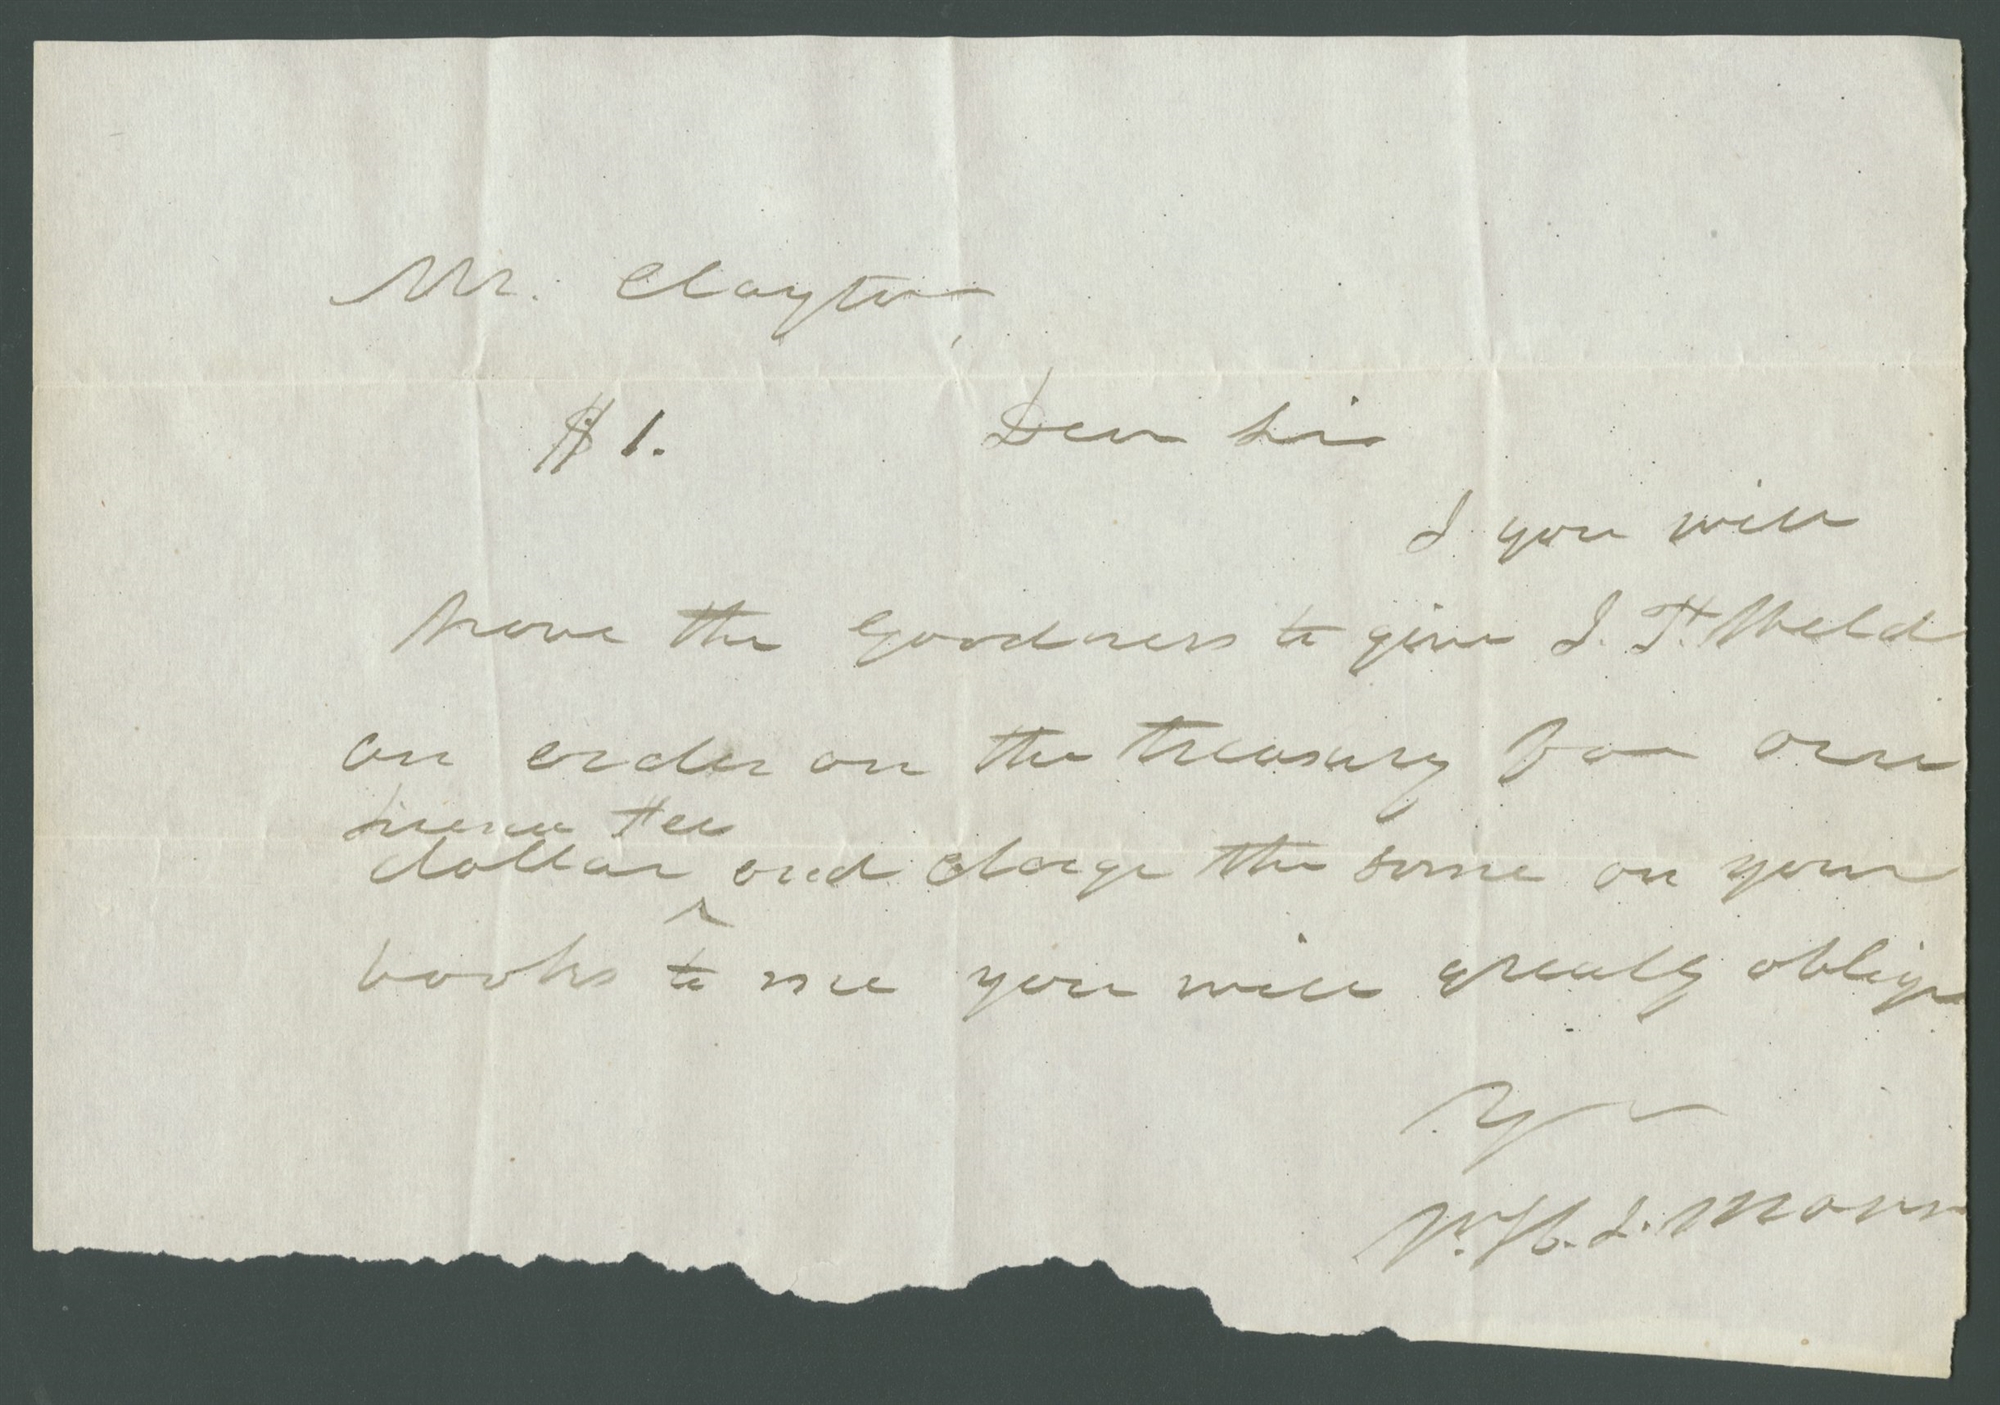 Mr. Clayton,
$1. Dear Sir
I you will
have the goodness to give J. H. Weld
an order on the treasury for one
dollar and charge the same on your
books to me you will greatly oblige
W. H. J.